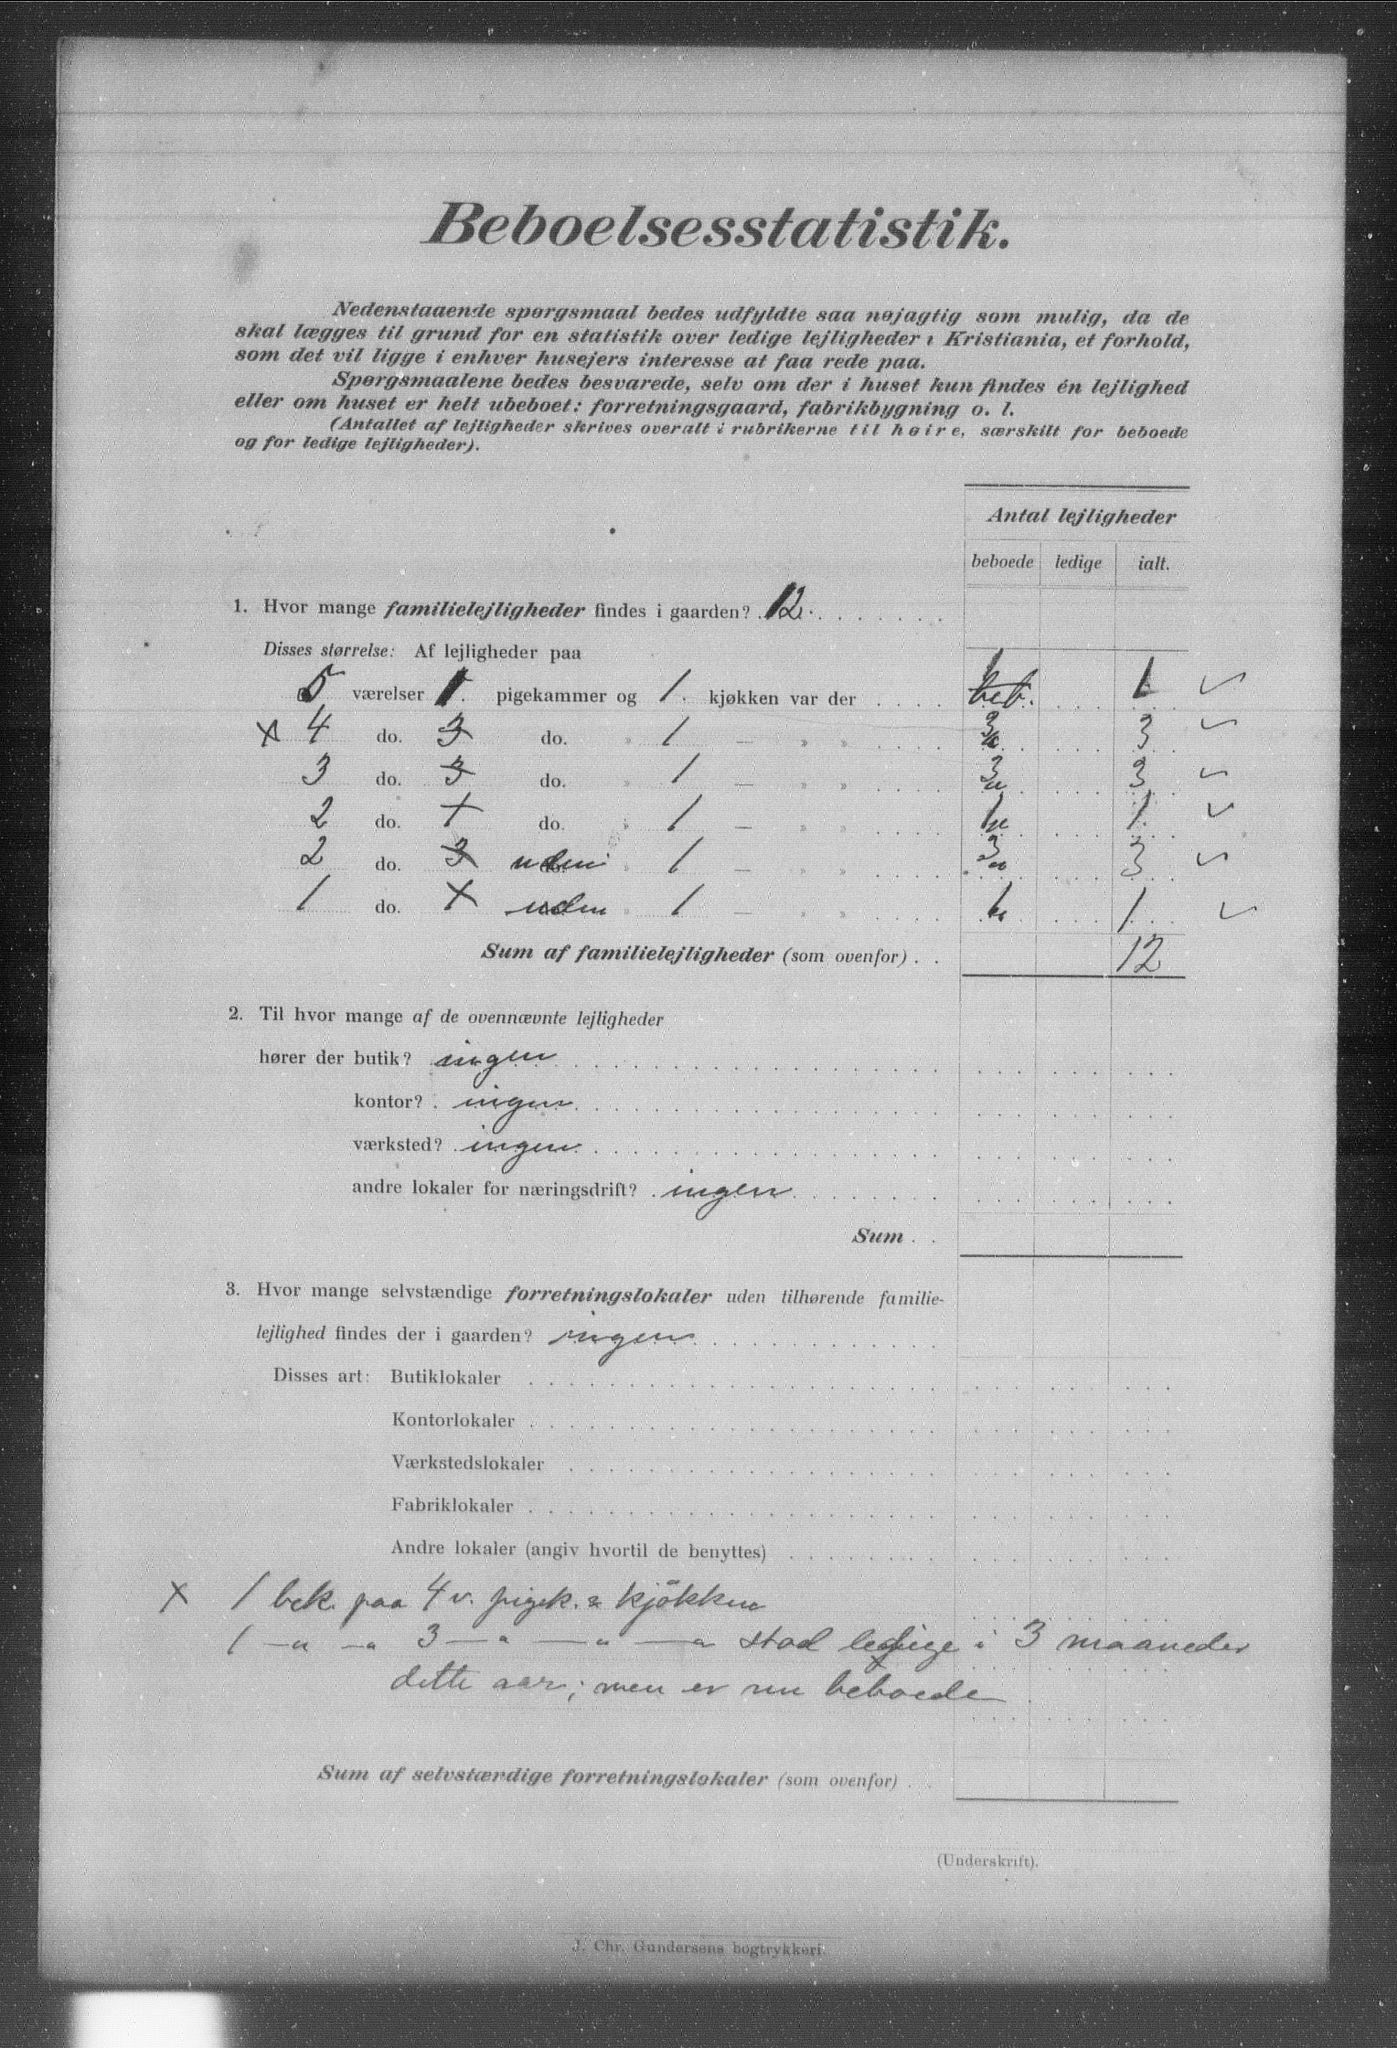 Beboelsesstatistik.
Nedenstaaende spørgsmaal bedes udfyldte saa nøjagtig som mulig, da de
skal lægges til grund for en statistik over ledige lejligheder i Kristiania, et forhold,
som det vil ligge i enhver husejers interesse at faa rede paa.
Spørgsmaalene bedes besvarede, selv om der i huset kun findes én lejlighed
eller om huset er helt ubeboet: forretningsgaard, fabrikbygning o. l.
(Antallet af lejligheder skrives overalt i rubrikerne til høire, særskilt for beboede
og for ledige lejligheder).
Antal lejligheder
beboede ledige ialt.
1. Hvor mange familielejligheder findes i gaarden? 12.
Disses størrelse: Af lejligheder paa
5 værelser 1 pigekammer og 1 kjøkken var der 1 beb. 1 ✓
x 4 do. 3 do. » 1 — » » 3 " 3 ✓
3 do. 3 do. » 1 — » » 3 " 3 ✓
2 do. 1 do. » 1 — » » 1 " 1 ✓
2 do. 3 uden do. » 1 — » » 3 " 3 ✓
1 do. 1 uden » 1 — » » 1 " 1 ✓
Sum af familielejligheder (som ovenfor) . . 12
2. Til hvor mange af de ovennævnte lejligheder
hører der butik? ingen
kontor? ingen
værksted? ingen
andre lokaler for næringsdrift? ingen
Sum . .
3. Hvor mange selvstændige forretningslokaler uden tilhørende familie-
lejlighed findes der i gaarden? ingen
Disses art: Butiklokaler
Kontorlokaler
Værkstedslokaler
Fabriklokaler
Andre lokaler (angiv hvortil de benyttes)
x 1 bek. paa 4 v. pigek. & kjökken
1 —"— —" 3 —"— —"— —" stod ledige i 3 maaneder
dette aar; men er nu beboede
Sum af selvstændige forretningslokaler (som ovenfor) . .
(Underskrift).
J. Chr. Gundersens bogtrykkeri.